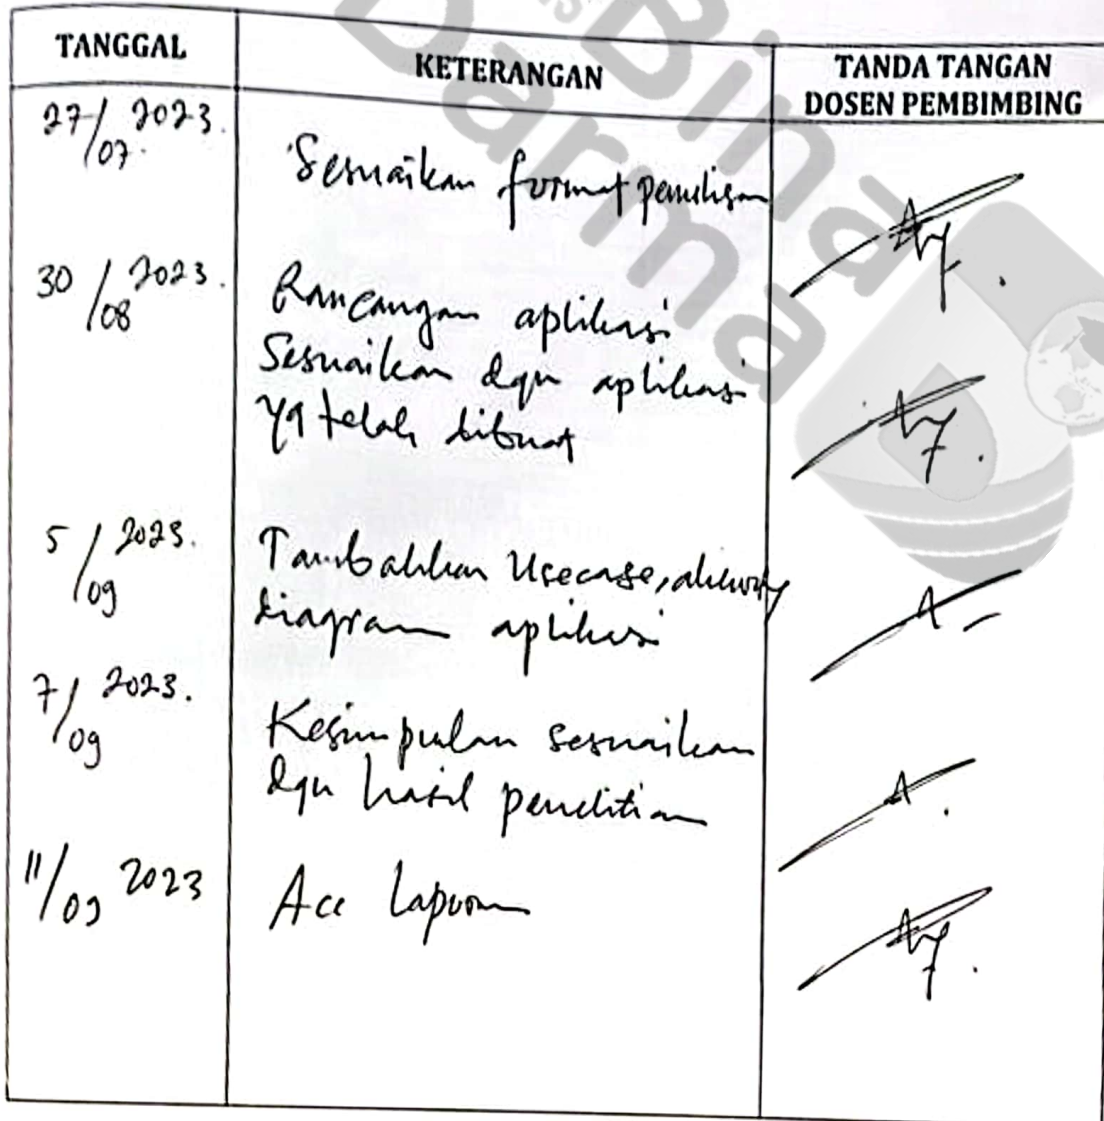 Bina
Darma
TANGGAL
KETERANGAN
TANDA TANGAN
DOSEN PEMBIMBING
27/07 2023.
Sesuaikan format penulisan
30/08 2023.
Rancangan aplikasi
Sesuaikan dgn aplikasi
yg telah dibuat
5/09 2023.
Tambahkan Usecase, aktivity
diagram aplikasi
7/09 2023.
Kesimpulan sesuaikan
dgn hasil penelitian
11/09 2023
Acc Laporan